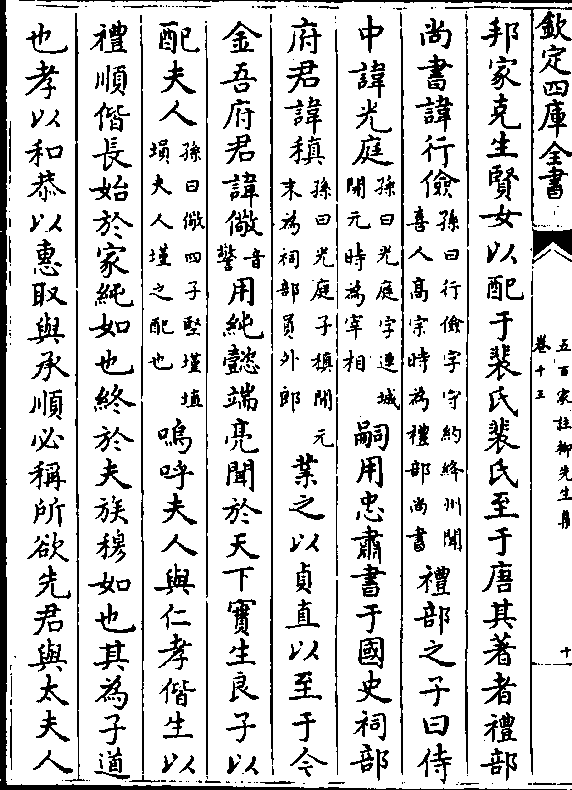 欽定四庫全書
五百家註柳先生集
卷十三
十
邦家克生賢女以配于裴氏裴氏至于唐其著者禮部
尚書諱行儉孫曰行儉字守約絳州聞喜人髙宗時為禮部尚書禮部之子曰侍
中諱光庭孫曰光庭字連城開元時為宰相嗣用忠肅書于國史祠部
府君諱稹孫曰光庭子稹開元末為祠部員外郎業之以貞直以至于今
金吾府君諱儆音警用純懿端亮聞於天下寳生良子以
配夫人孫曰儆四子堅墐埴塤夫人墐之配也嗚呼夫人與仁孝偕生以
禮順偕長始於家純如也終於夫族穆如也其為子道
也孝以和恭以惠取與承順必稱所欲先君與太夫人